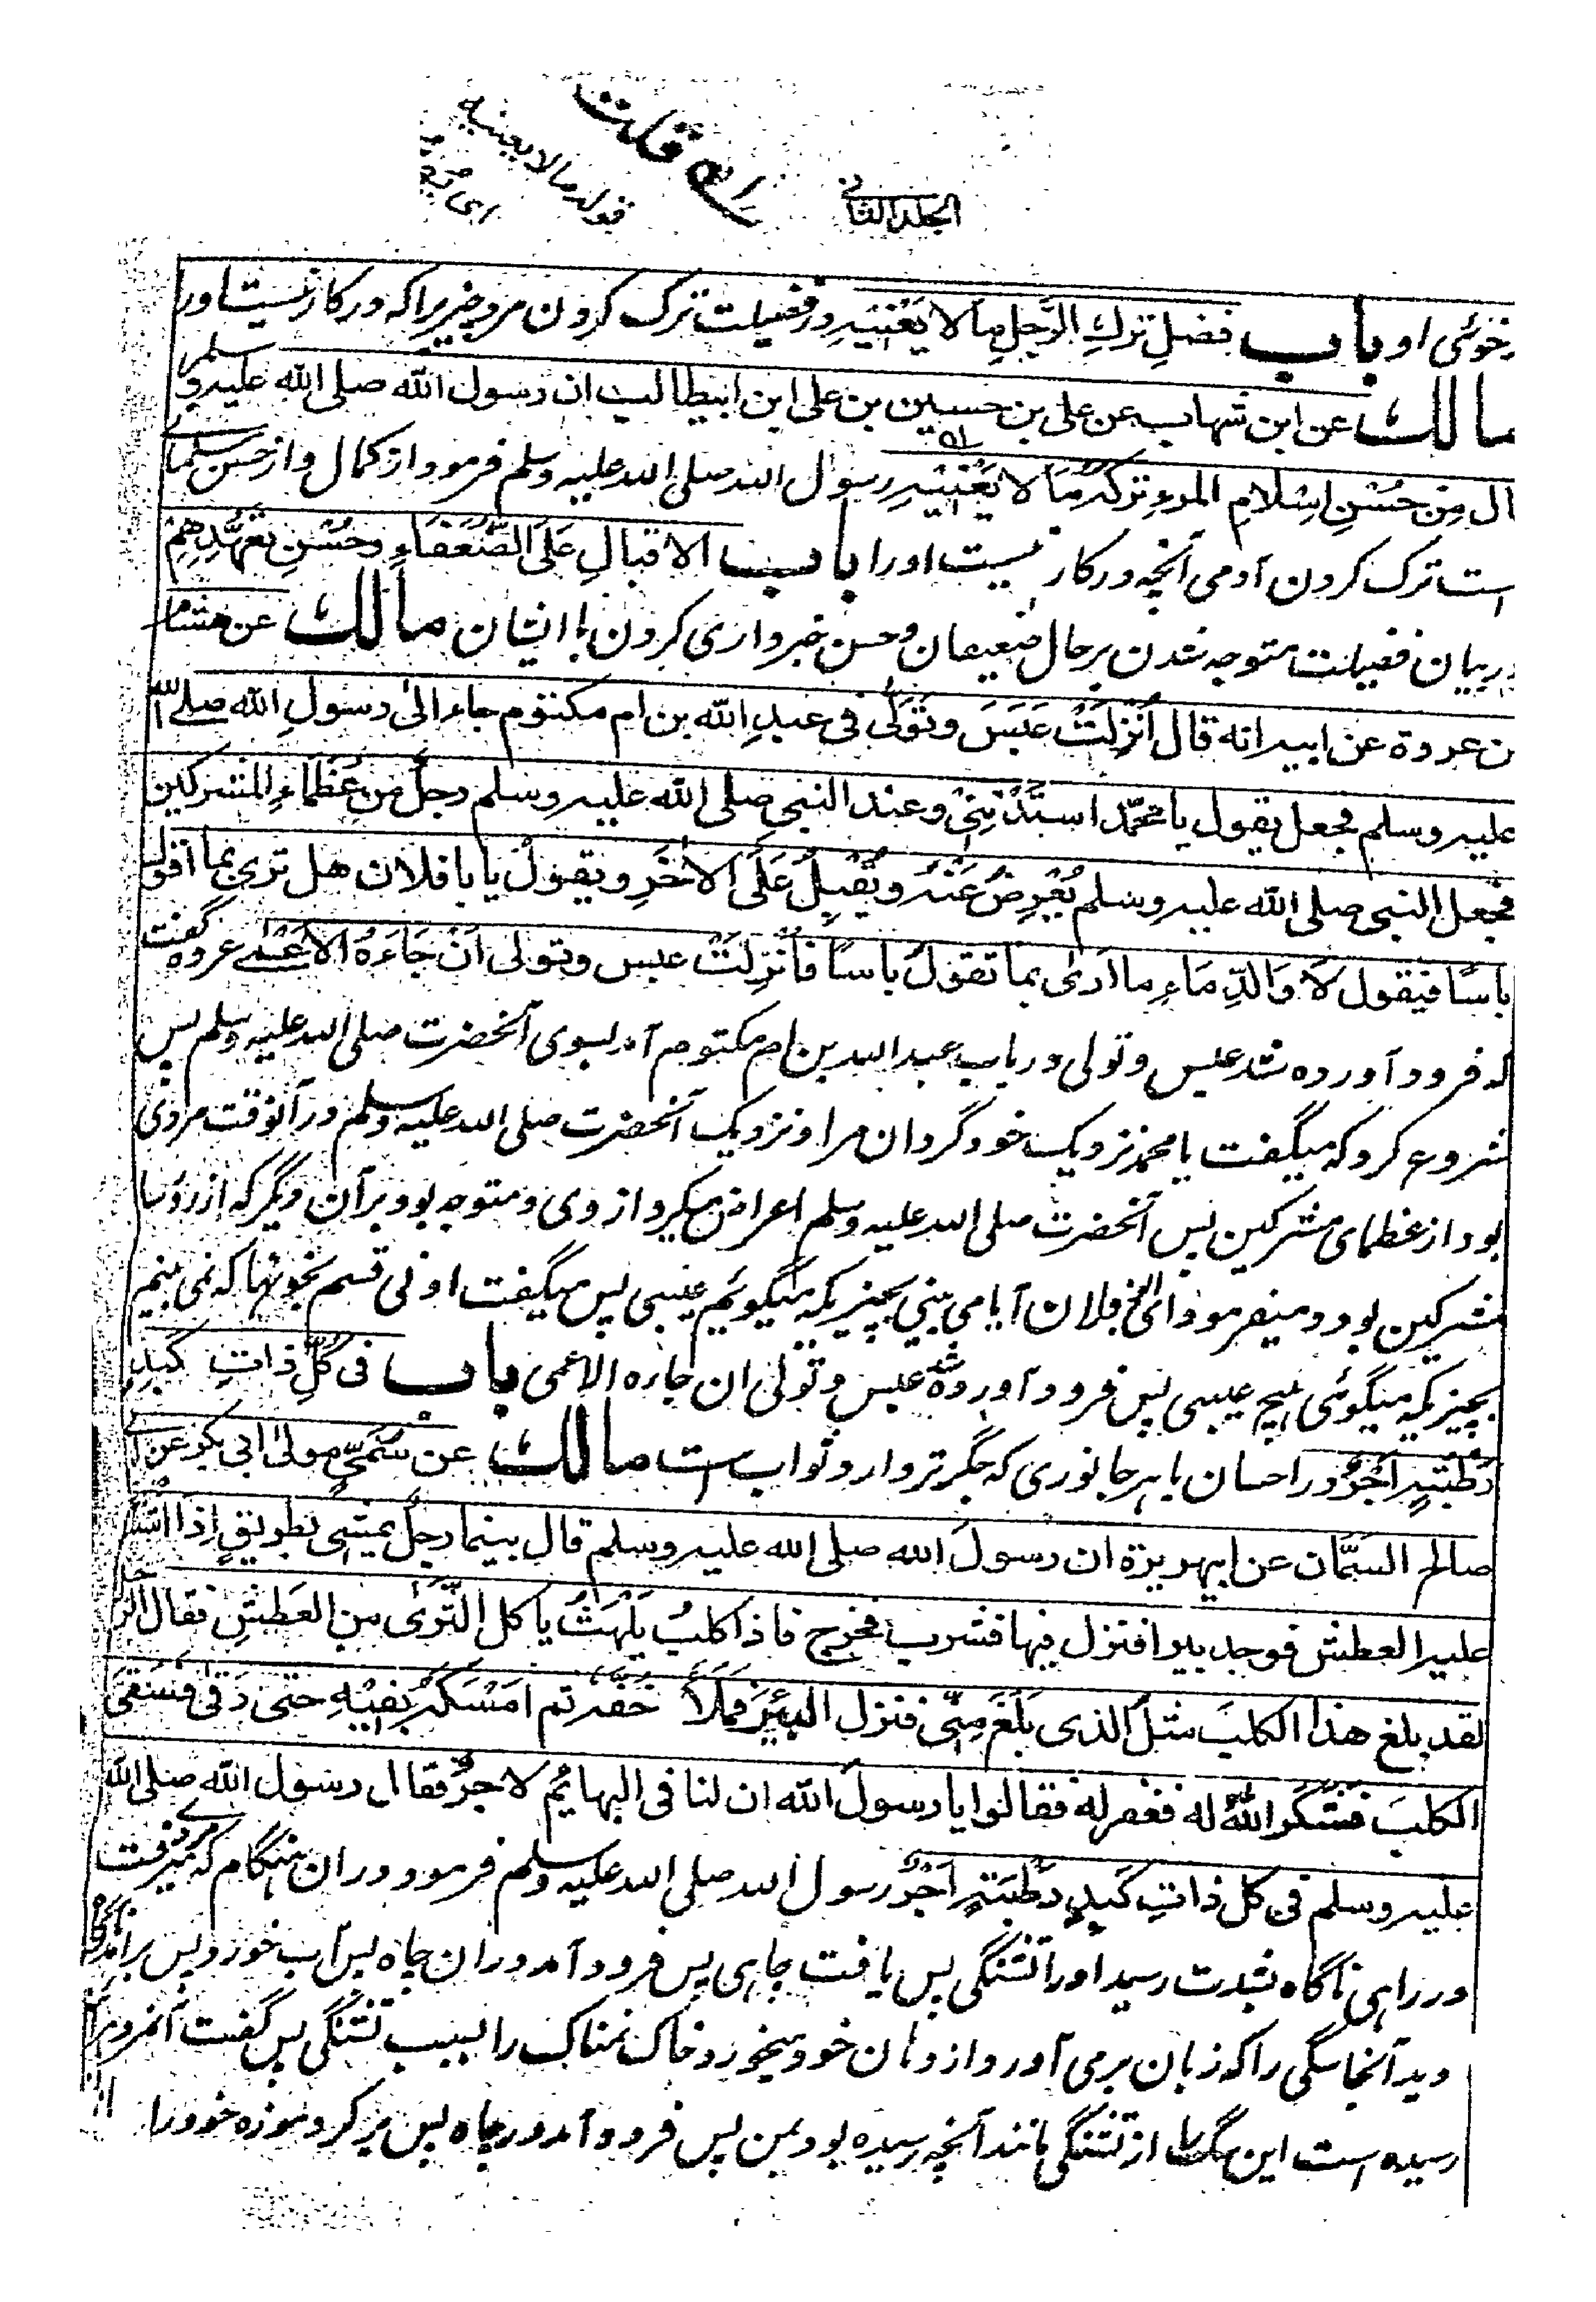 قلت
قوله ما لا يعنيه
الجلد الثانی
خوئی او باب فضلِ تركِ الرَّجلِ ما لا يَعْنيْهِ در فضیلت ترک کردن مرد چیزیرا که در کار نیست اورا
مالك عن ابن شهاب عن علی بن حسین بن علی ابن ابیطالب ان رسول الله صلی الله علیه وسلم
ال مِن حُسْنِ اِسْلامِ المرءِ تركُه مَا لا يَعْنِيْهِ رسول الله صلی الله علیه وسلم فرمود از کمال و از حسن مسلمانی
است ترک کردن آدمی آنچه در کار نیست اورا باب الاقبالِ عَلَى الضُّعَفَاءِ وحُسْنِ تعَهُّدِهِمْ
در بیان فضیلت متوجه شدن بر حال ضعیفان و حسن خبرداری کردن با ایشان مالك عن هشام
بن عروة عن ابیه انه قال اُنْزِلَتْ عَبَسَ وتَوَلّٰى فی عبدِ الله بن ام مكتوم جاء الیٰ رسولِ الله صلے الله
علیه وسلم فجعل یقول یا محمّد استَدْنِيْنِی وعند النبی صلی الله علیه وسلم رجلٌ مِن عُظَماءِ المشركین
فجعل النبی صلی الله علیه وسلم يُعْرِضُ عَنْهُ ويُقْبِلُ عَلَى الاٰخَرِ ويقولُ یا با فلان هل تریٰ بما اقول
باسًا فیقول لَا وَالدِّمَاءِ ما اَریٰ بما تقولُ باسًا فاُنْزِلَتْ عبس وتولی اَنْ جَاءَهُ الاَعْمٰے عروه گفت
که فرود آورده شد عبس وتولی در باب عبد الله بن ام مکتوم آمد بسوی آنحضرت صلی الله علیه وسلم پس
شروع کرد که میگفت یا محمد نزدیک خود گردان مرا و نزدیک آنحضرت صلی الله علیه وسلم در آنوقت مردی
بود از عظمای مشرکین پس آنحضرت صلی الله علیه وسلم اعراض میکرد از وی و متوجه بود بر آن دیگر که از رؤسا
مشرکین بود و میفرمود ای فلان آیا می بینی بچیزیکه میگویم عیبی پس میگفت او نی قسم بخونها که نمی بینم
بچیزیکه میگوئی هیچ عیبی پس فرود آورده شد عبس وتولی ان جاءه الاعمی باب فی كُلِّ ذاتِ كَبِدٍ
رَطْبَةٍ اَجْرٌ در احسان با هر جانوری که جگر تر دارد ثواب است مالك عن سُمَیٍّ مولیٰ ابی بكر عن ابی
صالح السَّمَّان عن ابیهریرة ان رسولَ الله صلی الله علیه وسلم قال بینما رجلٌ یمشی بطریقٍ اِذَا اشْتَدَّ
علیه العطش فوجد بیرا فنزل فیها فشرب فخرج فاذا كلبٌ يَلْهَثُ یاكل الثَّرَىٰ مِن العَطَشِ فقال الرجل
لقد بلغ هذا الكلبَ مثلُ الذی بَلَغَ مِنِّی فنزل البِئْرَ فَمَلَأَ خُفَّهُ ثم امْسَكَهُ بِفِيْهِ حتی رَقِیَ فسَقَی
الكلبَ فشَكَرَ اللّٰهُ له فغفر له فقالوا یا رسولَ الله ان لنا فی البهایم لاَجْرٌ فقال رسول الله صلی الله
علیه وسلم فی كل ذاتِ كَبِدٍ رَطْبَةٍ اَجْرٌ رسول الله صلی الله علیه وسلم فرمود در آن هنگام که میرفت مردے
در راهی ناگاه بشدت رسید اورا تشنگی پس یافت چاهی پس فرود آمد در آن چاه پس آب خورد پس برآمد
دید آنجا سگی را که زبان برمی آورد از دهان خود میخورد خاک نمناک را بسبب تشنگی پس گفت آنمرد
رسیده است این سگ را از تشنگی مانند آنچه رسیده بود بمن پس فرود آمد در چاه پس پر کرد موزه خود را